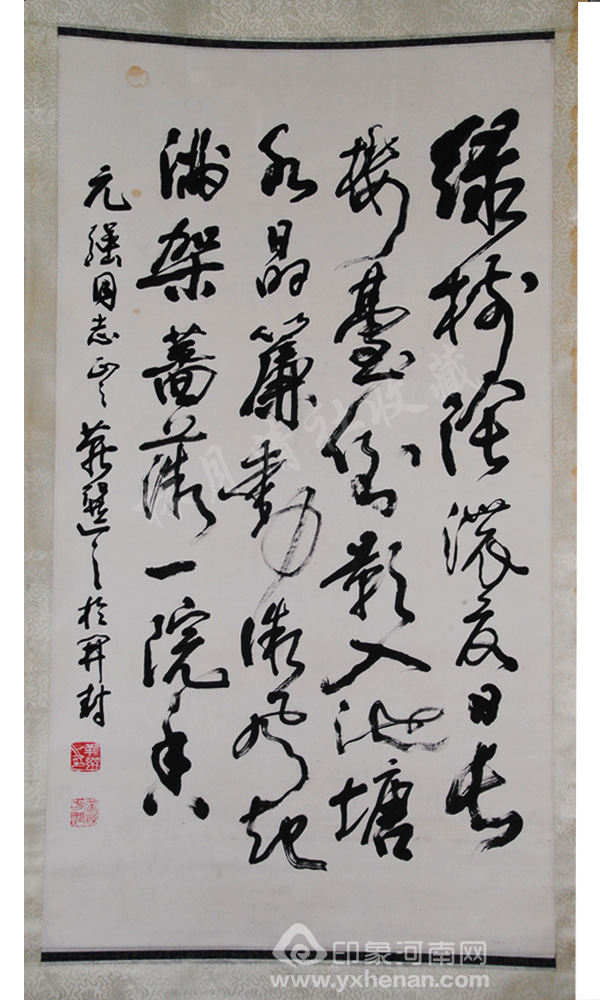 綠樹陰濃夏日長
樓臺倒影入池塘
水晶簾動微風起
滿架薔薇一院香
元強同志正之 於開封
收藏
印象河南网
www.yxhenan.com